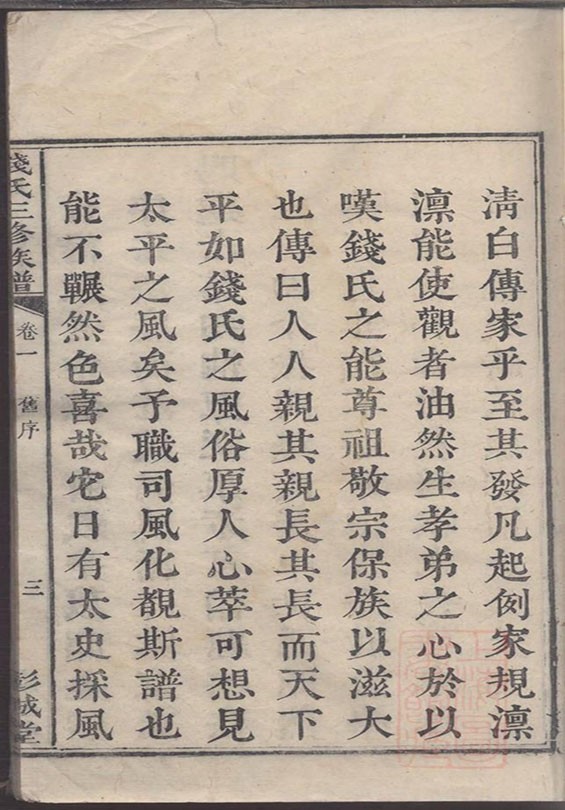 清白傳家乎至其發凡起例家規凛
凛能使觀者油然生孝弟之心於以
嘆錢氏之能尊祖敬宗保族以滋大
也傳曰人人親其親長其長而天下
平如錢氏之風俗厚人心萃可想見
太平之風矣予職司風化覩斯譜也
能不冁然色喜哉它日有太史採風
錢氏三修族譜 卷一 舊序 三 彭城堂